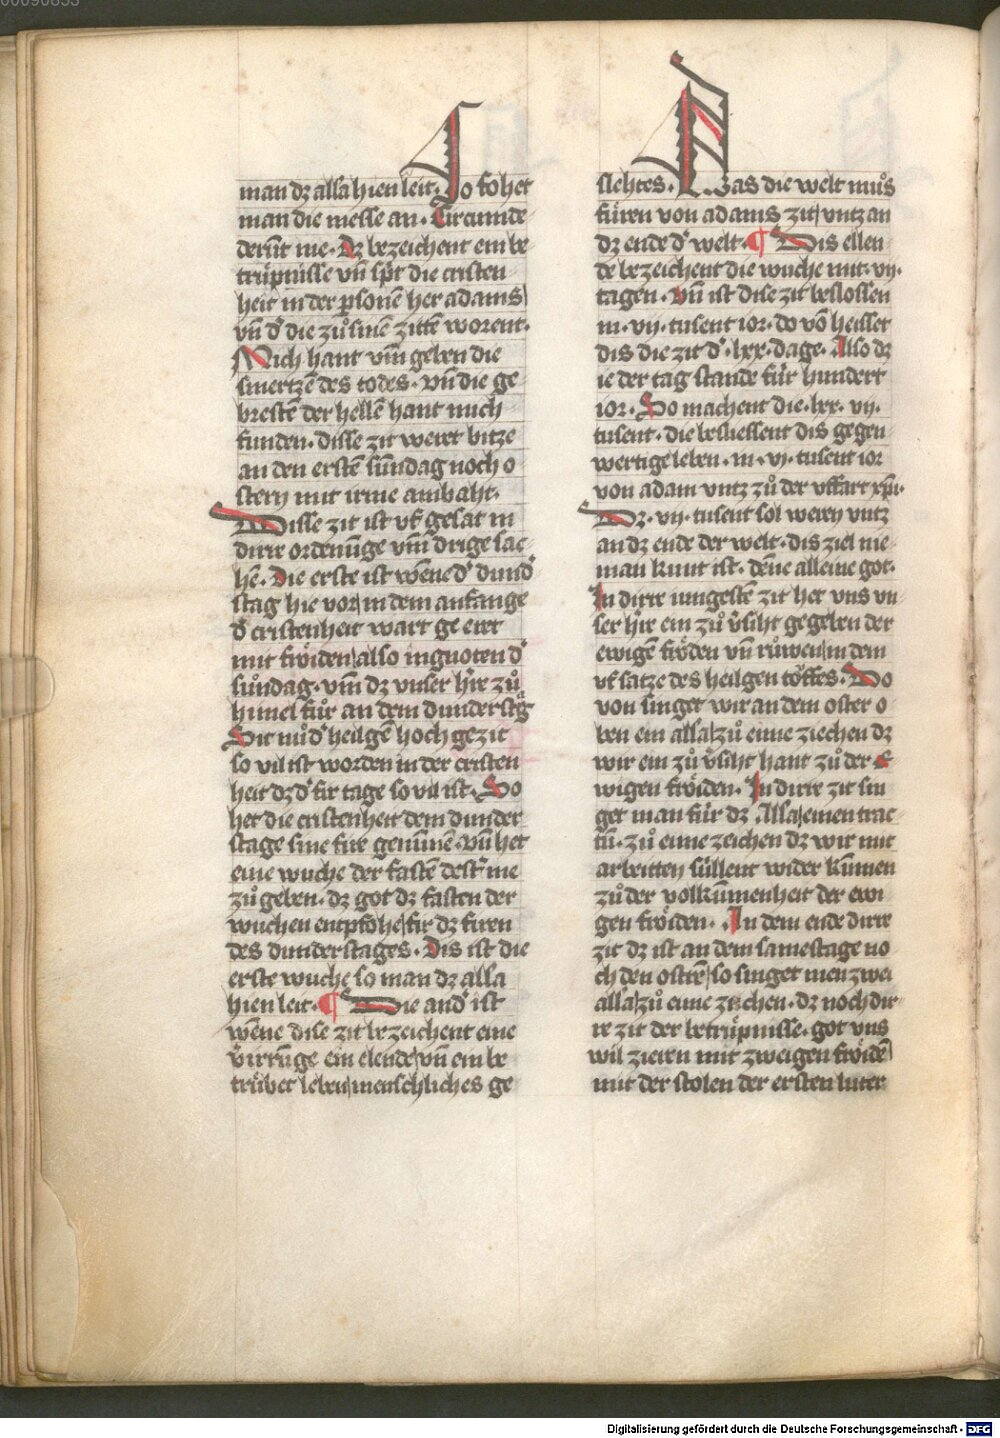 man dz alla hien leit. So fohet
man die messe an. Circumde-
derūt me. Dz bezeichent ein be-
trüpnisse vn̄ spͥt die cristen
heit in der ꝑsonē her adams
vn̄ dˢ die zůsinē zitē worent.
Mich hant vm̄ geben die
smertzē des todes. vn̄ die ge
brestē der hellē hant mich
funden. disse zit weret bitze
an den erstē sūndag noch o
stern mit irme ambaht.
Disse zit ist vf gesat in
dirre ordenūge vm̄ drige sac-
hē. Die erste ist wēne dˢ dund
stag hie vor in dem anfange
dˢ cristenheit wart ge eret
mit fröiden also inguoten dˢ
sůndag. vm̄ dz vnser hˢre zů
himel fůr an dem dunderstag
Sit nůdˢ heilgē hoch gezit
so vil ist worden in der cristen
heit dz dˢ fir tage so vil ist. So
het die cristenheit dem dunder
stage sine fire genūmē. vn̄ het
eine wuche der fastē destˢ me
zů geben. dz got dz fasten der
wuchen entpfohe fir dz firen
des dunderstages. Dis ist die
erste wuche so man dz alla
hien leit. ¶ Die andˢ ist
wēne dise zit bezeichent eine
vˢirrūge ein elende vn̄ ein be
trüber leben menschliches ge
slehtes. Was die welt můs
füren von adams zit vntz an
dz ende dˢ welt. ¶ Dis ellen
de bezeichent die wuche mit. vij.
tagen. vn̄ ist dise zit beslossen
in. vij. tusent ior. do vō heisset
dis die zit dˢ. lxx. dage. Also dz
ie der tag stande für hundert
ior. So machent die. lxx. vij.
tusent. die besliessent dis gegen
wertige leben. in. vj. tusent ior
von adam vntz zů der vffart xp̄i.
Dz. vij. tusent sol weren vntz
an dz ende der welt. dis ziel nie-
man kunt ist. dēne alleine got.
In dirre iungestē zit het vns vn
ser hˢre ein zů vˢsiht gegeben der
ewigē fröden vn̄ růwen in dem
vf satze des heilgen töffes. Do
von singet wir an dem oster o
ben ein alla zů eime ziechen dz
wir ein zů vˢsiht hant zů der e
wigen fröiden. In dirre zit sin
get man für dz Alla einen trac
tū. zů eime zeichen dz wir mit
arbeiten süllent wider kūmen
zů der volkūmenheit der ewi
gen fröiden. In dem ende dirre
zit dz ist an dem samestage no
ch den ostrē so singet men zwei
alla zů eime zeichen. dz noch dir
re zit der betrüpnisse. got vns
wil zieren mit zweigen fröidē
mit der stolen der ersten luter
Digitalisierung gefördert durch die Deutsche Forschungsgemeinschaft - DFG